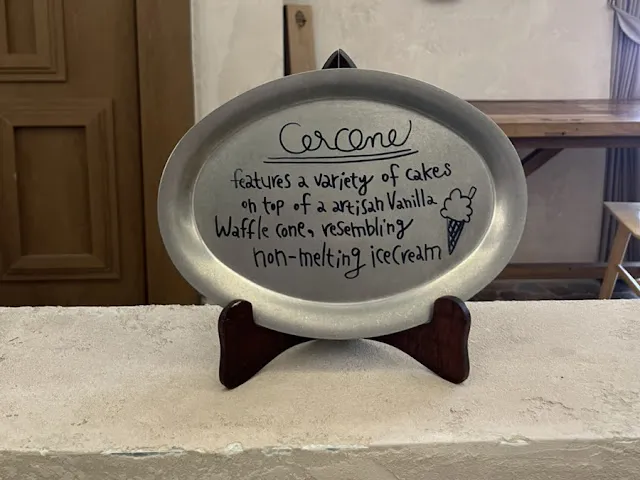 Cercone
features a variety of cakes
on top of a artisan Vanilla
Waffle cone, resembling
non-melting icecream